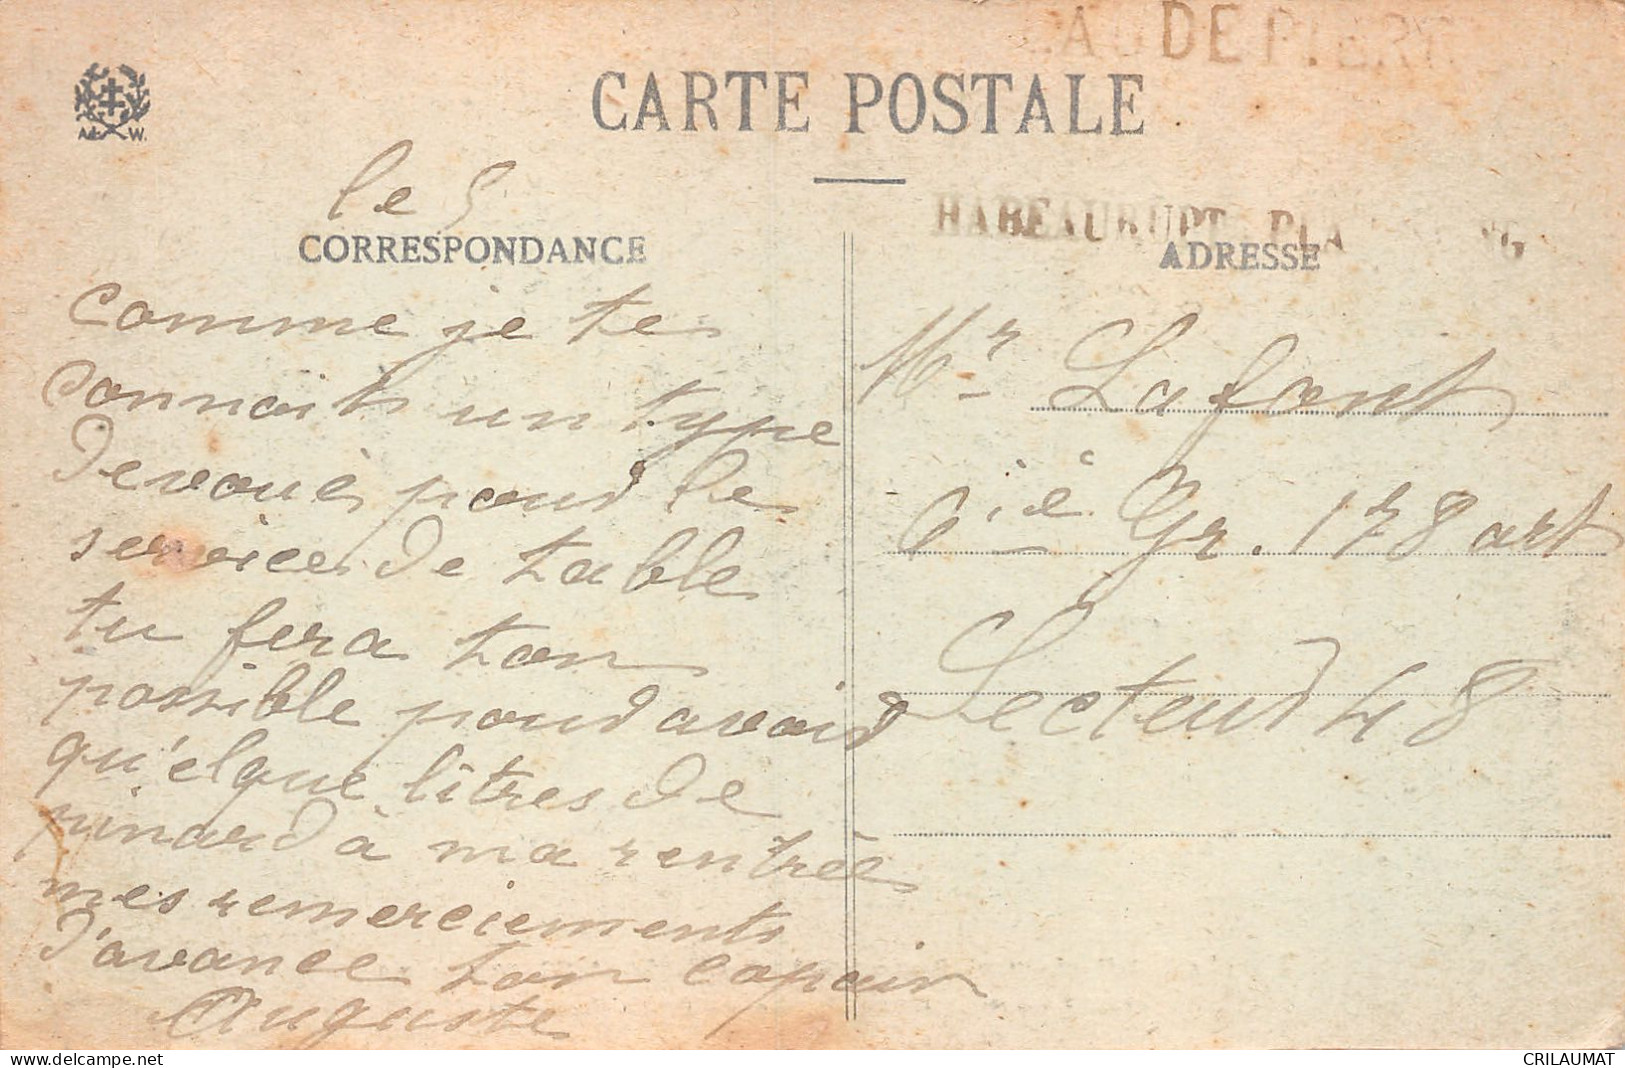 DE
CARTE POSTALE
Ad. W.
HABEAURUPT
le 5
CORRESPONDANCE
ADRESSE
comme je te
connait un type
devoué pour le
service de table
tu fera ton
possible pour avoir
qu'elque litres de
pinard à ma rentrée
mes remerciements
d'avance ton copain
Auguste
Mr Lafont
6ié Gr. 178 art
Secteur 48
CRILAUMAT